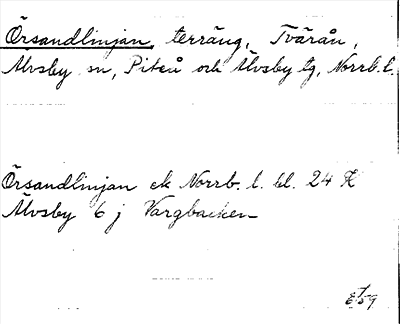 Örsandlinjan, terräng, Tvärån,
Älvsby sn, Piteå och Älvsby tg, Norrb. l.
Örsandlinjan ek Norrb. l. bl. 24 K
Älvsby 6 j Vargbacken